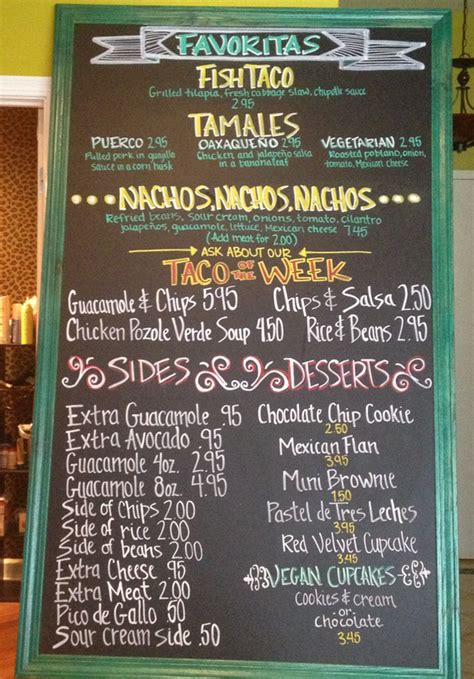 FAVORITAS
FISH TACO
Grilled tilapia, fresh cabbage slaw, chipotle sauce
2.95
TAMALES
PUERCO 2.95
Pulled pork in guajillo
sauce in a corn husk
OAXAQUEÑO 2.95
Chicken, and jalapeño salsa
in a banana leaf
VEGETARIAN 2.95
Roasted poblano, onion,
tomato, Mexican cheese
NACHOS, NACHOS, NACHOS
Refried beans, sour cream, onions, tomato, cilantro
jalapeños, guacamole, lettuce, Mexican cheese 7.45
(Add meat for 2.00)
ASK ABOUT OUR
TACO OF THE WEEK
Guacamole & Chips 5.95
Chips & Salsa 2.50
Chicken Pozole Verde Soup 4.50
Rice & Beans 2.95
SIDES
Extra Guacamole .95
Extra Avocado .95
Guacamole 4oz. 2.95
Guacamole 8oz. 4.95
Side of Chips 2.00
Side of rice 2.00
Side of beans 2.00
Extra Cheese .95
Extra Meat 2.00
Pico de Gallo .50
Sour cream side .50
DESSERTS
Chocolate Chip Cookie
2.50
Mexican Flan
3.95
Mini Brownie
1.50
Pastel de Tres Leches
3.95
Red Velvet Cupcake
3.45
VEGAN CUPCAKES
cookies & cream
or
chocolate
3.45